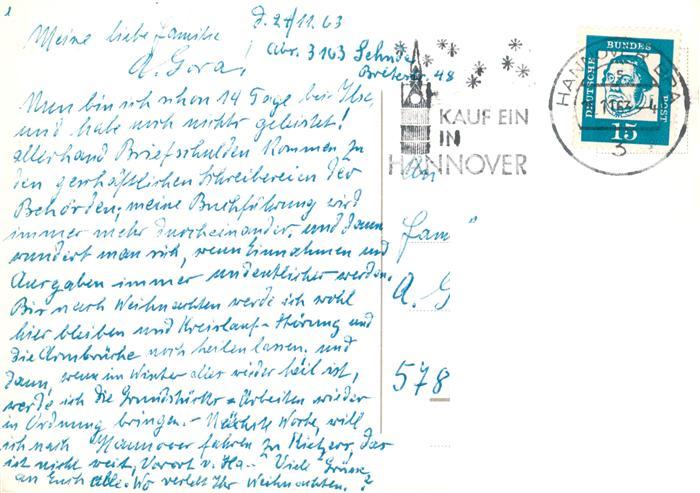 d. 24/11.63
Meine liebe Familie
Abr. 3163 Sehnde
A. Gora,
Breitestr. 48
Nun bin ich schon 14 Tage bei Ilse,
und habe noch nichts geleistet!
allerhand Briefschulden kommen zu
den geschäftlichen Schreibereien der
Behörden; meine Buchführung wird
immer mehr durcheinander, und dann
wundert man sich, wenn Einnahmen und
Ausgaben immer undeutlicher werden.
Bis nach Weihnachten werde ich wohl
hier bleiben und Kreislauf-Störung und
die Armbrüche noch heilen lassen, und
dann, wenn im Winter alles wieder heil ist,
werde ich die Grundstücks-Arbeiten wieder
in Ordnung bringen. - Nächste Woche, will
ich nach Hannover fahren zu Rietzers, das
ist nicht weit, Vorort v. Ha-. Viele Grüsse,
an Euch alle. Wo verlebt Ihr Weihnachten.?
KAUF EIN
IN
HANNOVER
HANNOVER
3
DEUTSCHE BUNDESPOST
15
An
Fam
A. G
578